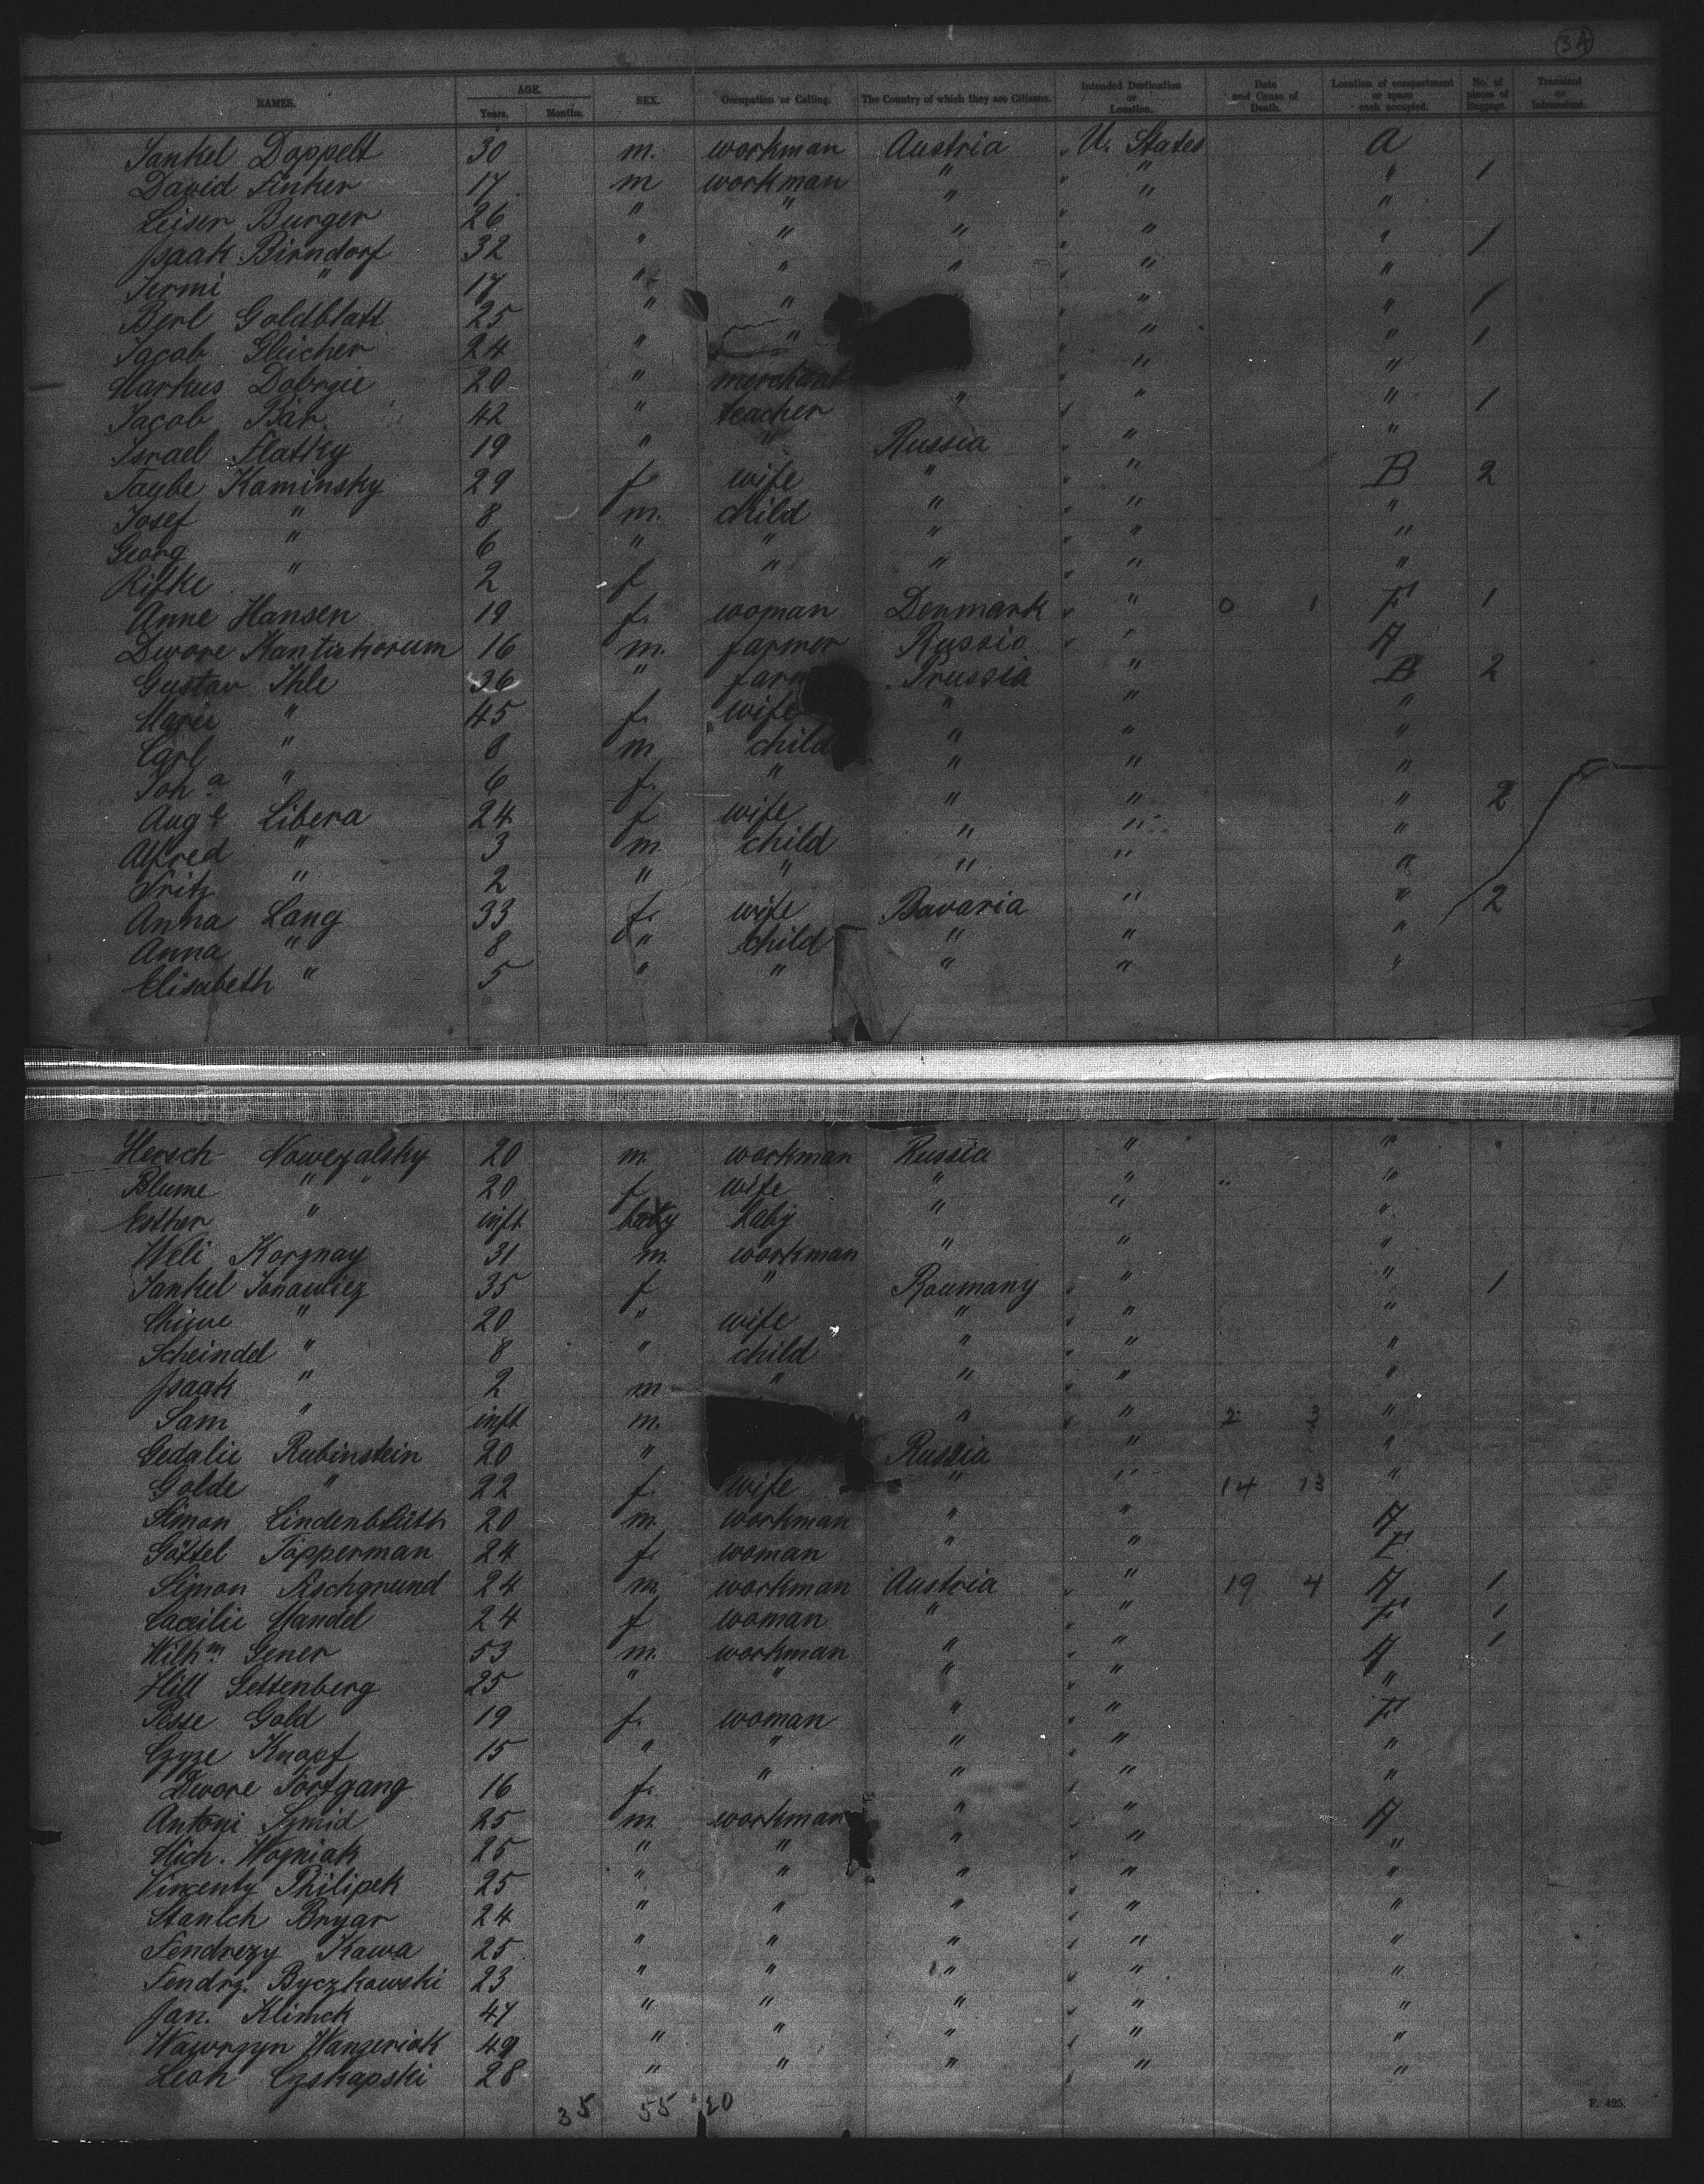 34
NAMES. AGE. Years. Months. SEX. Occupation or Calling. The Country of which they are Citizens. Intended Destination or Location. Date and Cause of Death. Location of compartment or space each occupied. No. of pieces of Baggage. Transient or Intransient.
Jankel Doppelt 30 m. workman Austria U. States A
David Finker 17 m workman " " " 1
Leiser Burger 26 " " " " "
Isaak Birndorf 32 " " " " " 1
Jermi " 17 " " " " "
Berl Goldblatt 25 " " " " 1
Jacob Gleicher 24 " " " " 1
Markus 20 " merchant " "
Jacob Bär 42 " teacher " " " 1
Israel Flatky 19 " " Russia " "
Taube Kaminsky 29 f. wife " " B 2
Josef " 8 m. child " " "
Georg " 6 " " " " "
Rifke " 2 f " " " "
Anne Hansen 19 f. woman Denmark " 0 1 F 1
Dwore 16 m. farmer Russia " A
Gustav Ihle 36 " farm Prussia " B 2
Marie " 45 f. wife " " "
Carl " 8 m. child " " "
Joh.a " 6 f. " " " "
Aug.e Libera 24 f wife " " " 2
Alfred " 3 m. child " " "
Fritz " 2 " " " " "
Anna Lang 33 f. wife Bavaria " " 2
Anna " 8 " child " " "
Elisabeth " 5 " " " " "
Hersch Nowezalsky 20 m. workman Russia " "
Blume " 20 f wife " " "
Esther " inft baby baby " " "
Weli Korznay 31 m. workman " " "
Jankel Janawicz 35 f " Roumany " " 1
" 20 " wife " " "
Scheindel " 8 " child " " "
Isaak " 2 m " " " "
Sam " inft m. " " 2 3 "
Gedalie Rubinstein 20 " Russia " "
Golde " 22 f. wife " " 14 13 "
Simon Lindenblüth 20 m. workman " " A
Göttel Töpperman 24 f. woman " " F
Simon Aschgrund 24 m. workman Austria " 19 4 A 1
Caecilie Mandel 24 f woman " " F 1
Wilh.m Gener 53 m. workman " " A 1
Hill Settenberg 25 " " " " "
Pesse Gold 19 f. woman " " F
Czyze Knopf 15 " " " " "
Dwore Förtgang 16 f. " " " "
Antoni Szmid 25 m. workman " " A
Mich. Wozniak 25 " " " " "
Vincenty Philipek 25 " " " " "
Stanlch Bryar 24 " " " " "
Fendrezy Kawa 25 " " " " "
Fendrz. Byczkowski 23 " " " " "
Jan. Klimek 47 " " " " "
Wawrzyn 49 " " " " "
Leon Czskapski 28 " " " " "
35 55 20
F. 425.